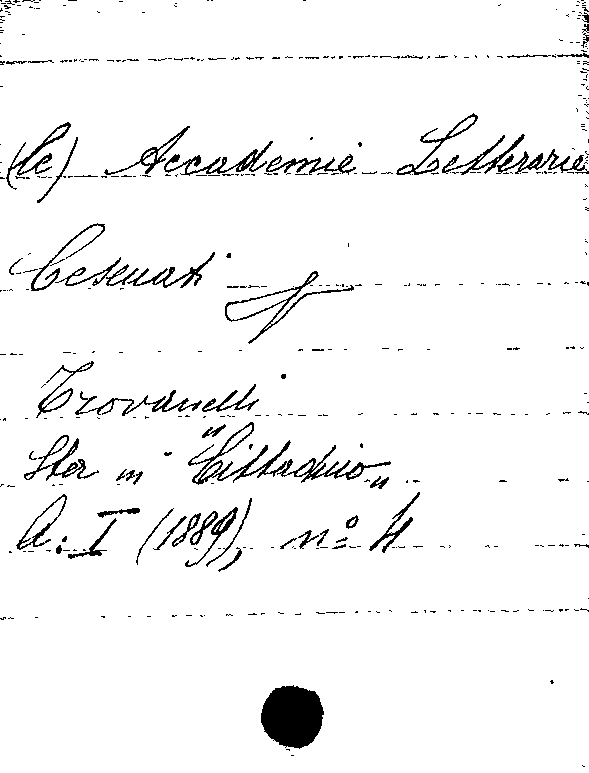 (le) Accademie Letterarie
Cesenati
Trovanelli
Sta in "Cittadino"
A: I (1889), nº 4